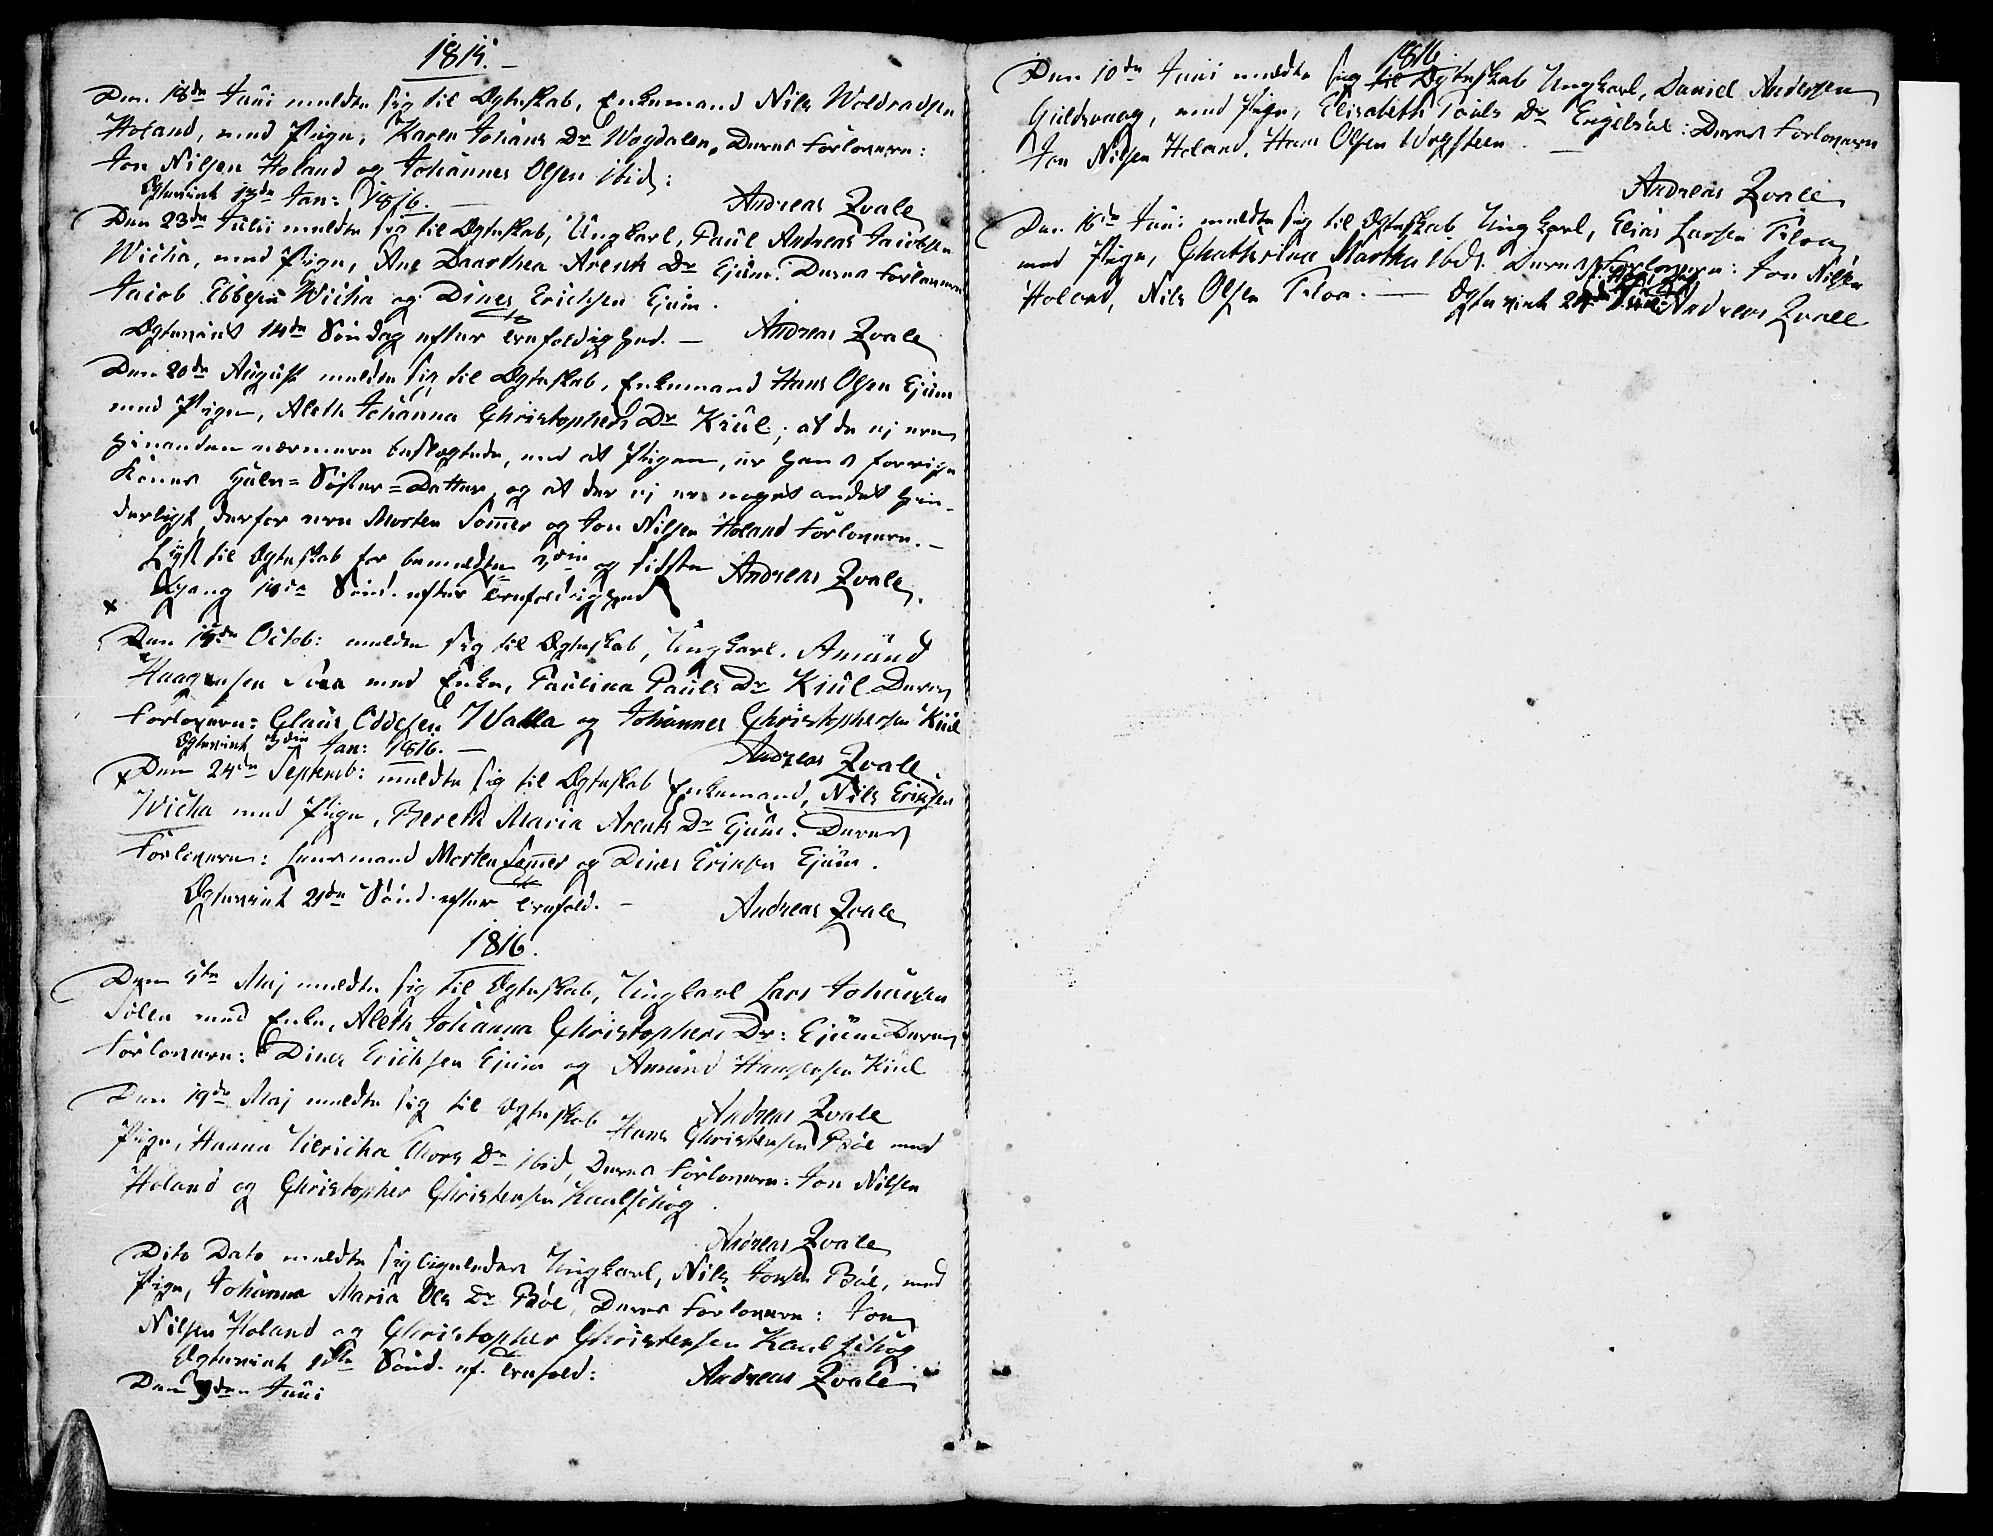 1815.
Den 18de Juni meldte sig til Ægteskab, Enkemand Nils Woldradsen
Holand, med Pige, Karen Johans Dr Wogdalen, Deres Forlovere:
Jon Nilsen Holand og Johannes Olsen ibid:
Ægteviet 13de Jan: 1816. —
Andreas Zvale
Den 23de Julii meldte sig til Ægteskab, Ungkarl, Paul Andreas Jacobsen
Wicha, med Pige, Ane Daarthea Arents Dr Ejüm. Deres Forlovere
Jacob Ebbesen Wicha og Dines Erichsen Ejüm.
Ægteviet 14de Søndag efter Trefoldighed. —
Andreas Zvale
Den 20de August meldte sig til Ægteskab, Enkemand Hans Olsen Ejüm
med Pigen, Aleth Johanna Christophers Dr Kiül; at de ej ere
hinanden nærmere beslægtede, end at Pigen, er hans forrige
Kones halv=Søster=Datter, og at der ej er noget andet hin-
derligt, derfor ere Morten Somer og Jon Nilsen Holand Forlovere. —
Lyst til Ægteskab for bemeldte 3die og sidste
Gang 14de Sønd. efter Trefoldighed
Andreas Zvale
Den 15de Octob: meldte sig til Ægteskab, Ungkarl. Amünd
Haagensen med Enke, Paulina Pauls Dr Kiül Deres
Forlovere: Claus Oddesen Walla og Johannes Christophersen Kiül
Ægteviet 3die Jan: 1816. —
Andreas Zvale
Den 24de Septemb: meldte sig til Ægteskab Enkemand, Nils Eriksen
Wicha med Pige, Bereth Maria Arents Dr Ejüm. Deres
Forlovere: Lensmand Morten Somer og Dines Eriksen Ejüm.
Ægteviet 21de Sønd. efter Trefold. —
Andreas Zvale
1816.
Den 5te Maj meldte sig til Ægteskab, Ungkarl Lars Johansen
Sölen med Enke, Aleth Johanna Christophers Dr: Ejüm Deres
Forlovere: Dines Erichsen Ejüm og Amünd Haagensen Kiül
Den 19de Maj meldte sig til Ægteskab Hans Christensen Böe med
Andreas Zvale
Pige, Hanna Ulricha Thors Dr ibid, Deres Forlovere: Jon Nilsen
Holand og Christopher Christensen Kaalschog
Andreas Zvale
Dito Dato meldte sig ligeledes Ungkarl, Nils Jonsen Böe, med
Pige, Johanna Maria Ols Dr Böe, Deres Forlovere: Jon
Nilsen Holand og Christopher Christensen Kaalschog
Ægteviet Sønd. ef. Trefold:
Andreas Zvale
Den 9den Juni
1816
Den 10de Juni meldte sig til Ægteskab Ungkarl, Daniel Andersen
Guldsvaag, med Pige, Elisabeth Pouls Dr Engelsöe: Deres Forlovere
Jon Nilsen Holand, Hans Olsen Wegsteen. —
Andreas Zvale
Den 16de Juni meldte sig til Ægteskab Ungkarl, Elias Larsen Tiloa
med Pige, Chathrina Martha ibd. Deres Forlovere: Jon Nilsen
Holand, Nils Olsen Tiloa. —
Ægteviet
Andreas Zvale